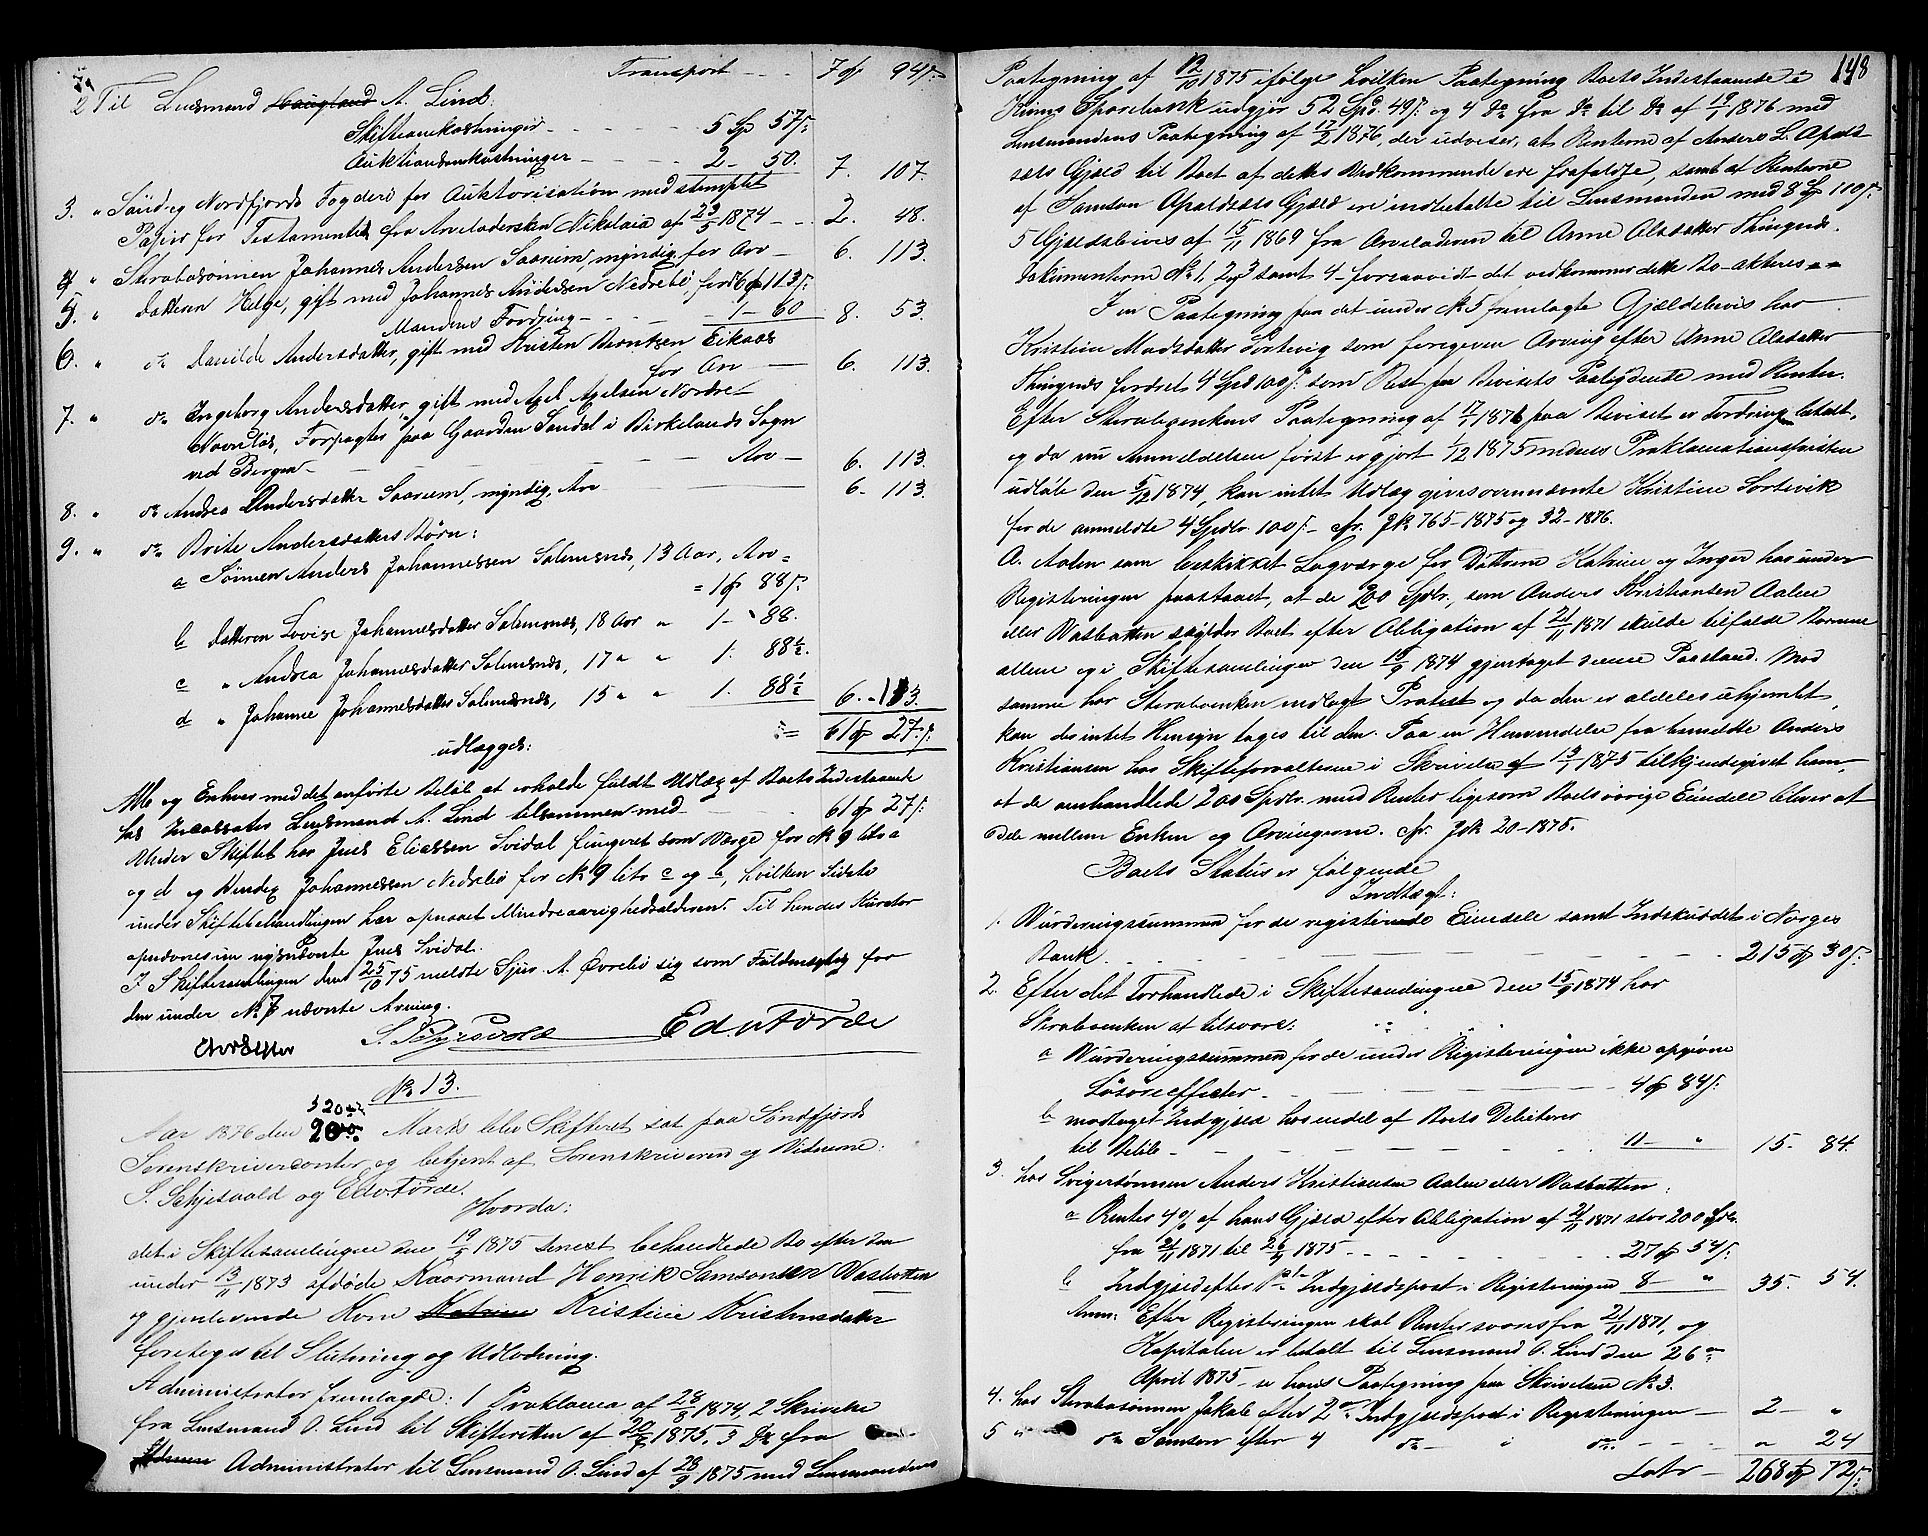 Transport - - - 7 Sp 94 s:
2 Til Lensmand Haugland A. Lind:
Skifteomkostninger - - - - 5 Sp 57 s:
Auktionsomkostninger - - - - 2 - 50. 7. 107.
3. " Sünd og Nordfjords Fogderi for Auktorisation med stemplet
Papir for Testamentet fra Arveladersken Nikolaia af 23/5 1874 - - 2. 48.
4 " Stervbosønnen Johannes Andersen Saarum, myndig, for Arv - 6. 113.
5. " Datteren Helge, gift med Johannes Andersen Nedrebø, for do 6 Sp 113 s:
Mandens Fordring - - - - - 1 - 60 8. 53.
6. " do Andersdatter, gift med Kristen Berntsen Eikaas
for Arv - 6. 113.
7. " do Ingeborg Andersdatter, gift med Axel Axelsen Nordre
Forpagter paa Gaarden Sandal i Birkelands Sogn
ved Bergen - - - - - Arv - 6. 113.
8. " do Andrea Andersdatter Saarum, myndig, Arv 6 - 113.
9. " do Brite Andersdatters Børn:
a Sønnen Anders Johannessen Solemsnes, 13 Aar, Arv =
= 1 Sp 88 s:
b Datteren Lovise Johannesdatter Solemsnes, 18 Aar " 1 - 88.
c " Andrea Johannesdatter Solemsnes, 17 " " 1. 88½.
d " Johanne Johannesdatter Solemsnes, 15 " " 1. 88½ 6. - 113.
:= 61 Sp 27 s:
udlægges:
Alle og Enhver med det anførte Beløb at erholde fuldt Udlæg af Boets Indestaaende
hos Incassator Lensmand A. Lind tilsammen med - 61 Sp 27 s:
Under Skiftet har Jens Eliassen Svidal fungeret som Værge for No 9 litr a
og d og Hendrik Johannessen Nedrebø for No 9 litr c og b, hvilken Sidste
under Skiftebehandlingen har opnaaet Mindreaarighedsalderen. Til hendes Kurator
opnævnes nu nysnævnte Jens Svidal.
I Skiftesamlingen den 25/10 75 meldte Sjur A. Øvrebø sig som Fuldmægtig for
den under No 7 nævnte Arving.
S. Schjesvold Edv Førde
No 13.
Aar 1876 den 20de Marts blev Skifteret sat paa Søndfjords
Sorenskrivercontor og betjent af Sorenskriveren og Vidnerne
S. Schjesvold og Edv Førde.
Hvorda:
det i Skiftesamlingen den 19/5 1875 senest behandlede Bo efter den
under 13/11 1873 afdøde Kaarmand Henrik Samsonsen Vasbotten
og gjenlevende Kone Katrine Kristine Kristensdatter
foretoges til Slutning og Udlodning.
Administrator fremlagde: 1 Proklama af 28/3 1874, 2 Skrivelse
fra Lensmand O. Lind til Skifteretten af 22/5 1875. 3 Do fra
Administrator til Lensmand O. Lind af 28/9 1875 med Lensmandens
148
Paategning af 12/10 1875 ifølge hvilken Paategning Boets Indestaaende i
Kinns Sparebank udgjør 52 Spd. 49 s: og 4 Do fra Do til Do af 19/1 1876 med
Lensmandens Paategning af 17/2 1876, der udviser, at Renterne af Anders L. Apald
sæts Gjæld til Boet af dettes Vedkommende ere frafaldte, samt at Renterne
af Samson Apaldsæts Gjæld ere indbetalte til Lensmanden med 8 Sp 110 s:
5 Gjældsbevis af 15/11 1869 fra Arveladeren til Anne Olsdatter Thingnæs.
Dokumenterne No 1, 2 og 3 samt 4 - forsaavidt det vedkommer dette Bo - akteres
I en Paategning paa det under No 5 fremlagte Gjældsbevis har
Kristine Madsdatter Sortevig som foregiven Arving efter Anne Olsdatter
Thingnæs fordret 4 Spd 100 s: som Rest paa Bevisets Paalydende med Renter.
Efter Stervboenkens Paategning af 17/1 1876 paa Beviset er Fordringen betalt,
og da nu Anmeldelsen først er gjort 1/12 1875 medens Proklamationsfristen
udløb den 5/10 1874, kan intet Udlæg gives ovennævnte Kristine Sortevik
for de anmeldte 4 Spdlr. 100 s. - cfr. JNo 765 - 1875 og 32 - 1876.
A. Aalen som beskikket Laugværge for Døttrene Katrine og Inger har under
Registeringen paastaaet, at de 200 Spdlr., som Anders Kristiansen Aalen
eller Vasbotten skylder Boet efter Obligation af 21/11 1871 skulde tilfalde Børnene
allene og i Skiftesamlingen den 15/9 1874 gjentaget denne Paastand. Mod
samme har Stervboenken nedlagt Protest og da den er aldeles uhjemlet,
kan der intet Hensyn tages til den. Paa en Henvendelse fra bemeldte Anders
Kristiansen har Skifteforvalteren i Skrivelse af 19/1 1875 tilkjendegivet ham,
at de omhandlede 200 Spdlr. med Renter ligesom Boets øvrige Eiendele bliver at
dele mellem Enken og Arvingerne. cfr. JNo 20 - 1875.
Boets Status er følgende
Indtægt:
1. Vurderingssummen for de registerede Eiendele samt Indskuddet i Norges
Bank - - - - - - 215 Sp 30 s:
2. Efter det Forhandlede i Skiftesamlingen den 15/9 1874 har
Stervboenken at tilsvare:
a Vurderingssummen for de under Registeringen ikke opgivne
Løsøreeffecter - - - - 4 Sp 84 s:
b modtaget Indgjæld hos endel af Boets Debitorer
til Beløb - - - - - 11 - " 15 - 84.
3. hos Svigersønnen Anders Kristiansen Aalen eller Vasbotten:
a Renter 4% af hans Gjæld efter Obligation af 21/11 1871 stor 200 Spdlr.
fra 21/11 1871 til 26/4 1875 - - - - 27 Sp 54 s:
b Indgjæld efter 1ste Indgjældspost i Registeringen 8 - " 35. 54.
Anm: Efter Registeringen skal Renter svares fra 21/11 1871, og
Kapitalen er betalt til Lensmand O. Lind den 26de
April 1875 - se hans Paategning paa Skrivelsen No 3.
4. hos Stervbosønnen Jakob efter 2den Indgjældspost i Registeringen - 2 - "
5 " do Samson efter 4 do - i do - - - " 24
Latr - 268 Sp 72 s: